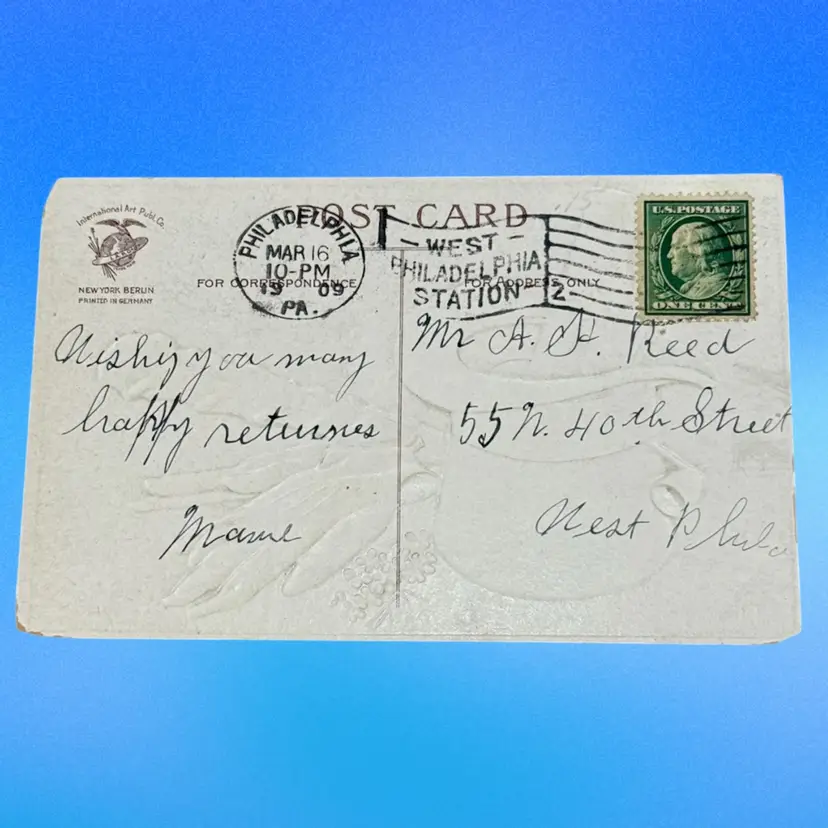 International Art Publ. Co.
NEW YORK BERLIN
PRINTED IN GERMANY
POST CARD
PHILADELPHIA
MAR 16
10-PM
09
PA.
WEST
PHILADELPHIA
STATION
2
U.S. POSTAGE
ONE CENT
FOR CORRESPONDENCE
FOR ADDRESS ONLY
Wishing you many
happy returnes
Mame
Mr A. H. Reed
55 N. 40th Street
West Phila